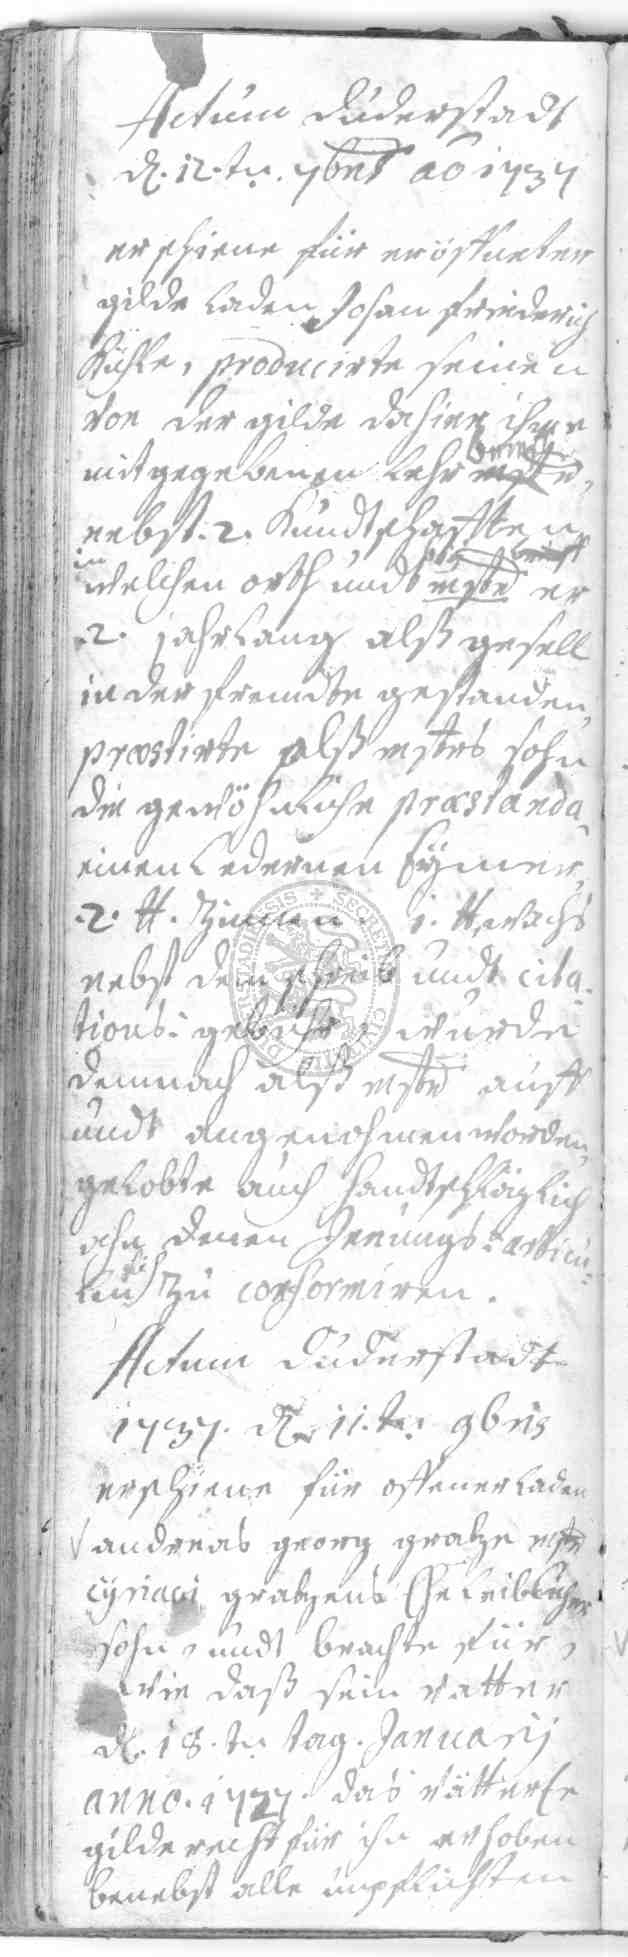 Actum Duderstadt
d. 12.ten 7bris ao 1737
erschiene für eröffneter
gilde laden Johan Friederich
producirte seinen
von der gilde dahier ihme
mitgegebenen Lehr brieff,
nebst .2. Kundtschafften
in welchen orth undt er
.2. jahrlang alß gesell
in der frembte gestanden,
præstirte alß mstrs sohn
die gewöhnliche præstanda
einen Ledernen Eymer,
.2. tt. Zinnen 1. tt. wachs
nebst dem schreib undt cita-
tions-gebühr, wurde
demnach alß mstr auff
undt angenohmen worden,
gelobte auch handtschläglich
ahn denen Innungs-articu-
len sich zu conformiren.
Actum Duderstadt
1737. d. 11.ten 9bris
erschiene für offener Laden
andreas georg gratze mstr
cÿriaci gratzens Eheleiblicher
sohn, undt brachte für,
wie daß sein vatter
d. 18.ten tag. Januarij
anno. 1727. das vätterle
gilderecht für ihn erhoben
benebst alle unpflichten